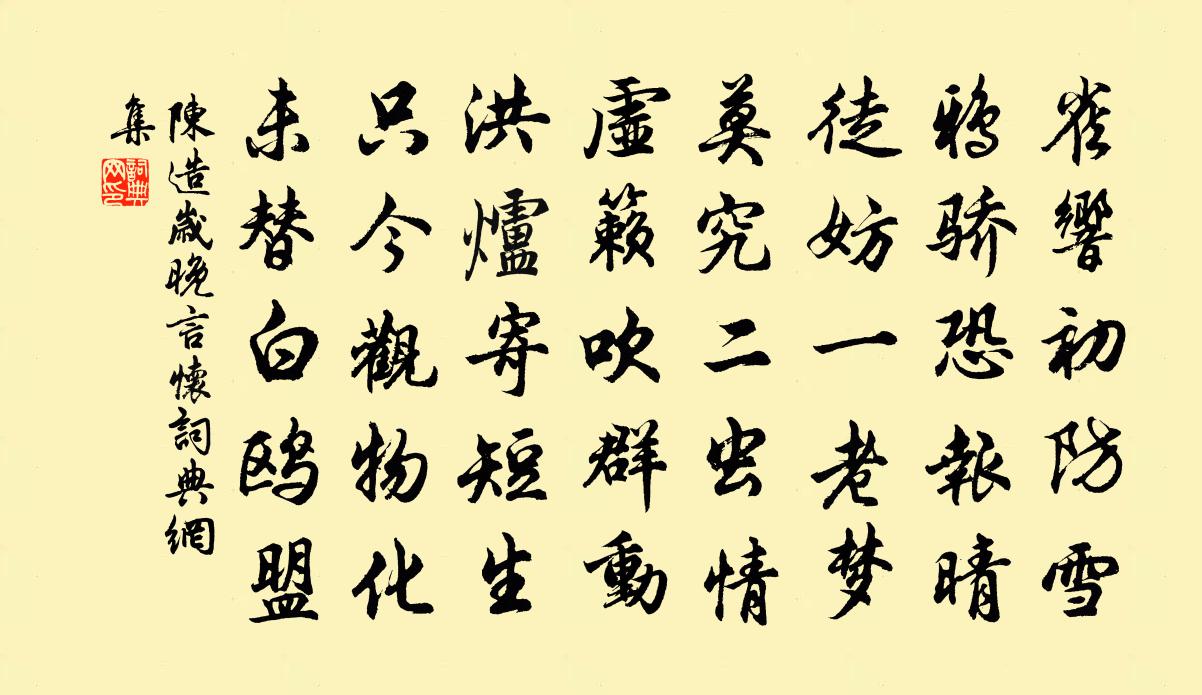 雀響初防雪
鸦骄恐報晴
徒妨一老梦
莫究二虫情
虛籟吹群動
洪爐寄短生
只今觀物化
未替白鸥盟
陳造歲晚言懷詞典網
集
詞典网印